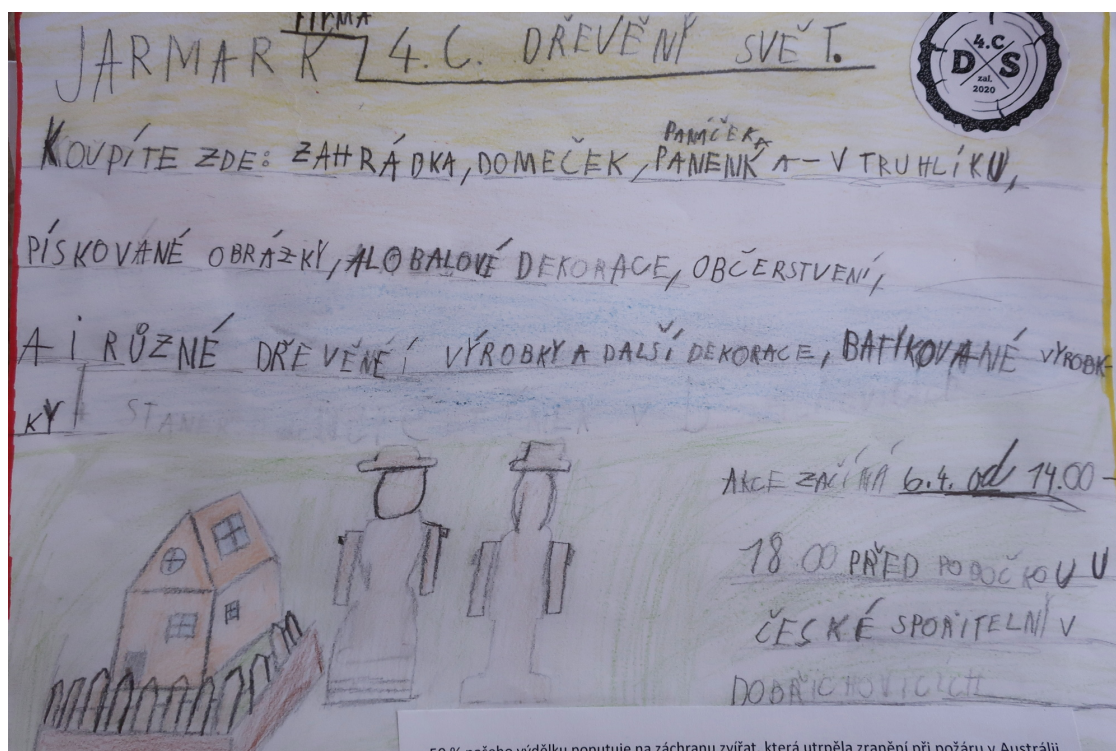 FIRMA
JARMARK 4.C. DŘEVĚNÝ SVĚT.
4.C.
D S
zal.
2020
PANÁČEK,
KOUPÍTE ZDE: ZAHRÁDKA, DOMEČEK, PANENKA - V TRUHLÍKU,
PÍSKOVANÉ OBRÁZKY, ALOBALOVÉ DEKORACE, OBČERSTVENÍ,
A I RŮZNÉ DŘEVĚNÉ VÝROBKY A DALŠÍ DEKORACE, BATIKOVANÉ VÝROBK-
KY
STANEK
AKCE ZAČÍNÁ 6.4. od 14.00 -
18.00 PŘED POBOČKOU U
ČESKÉ SPOŘITELNÝ V
DOBŘICHOVICÍCH
50 % našeho výdělku poputuje na záchranu zvířat, která utrpěla zranění při požáru v Austrálii